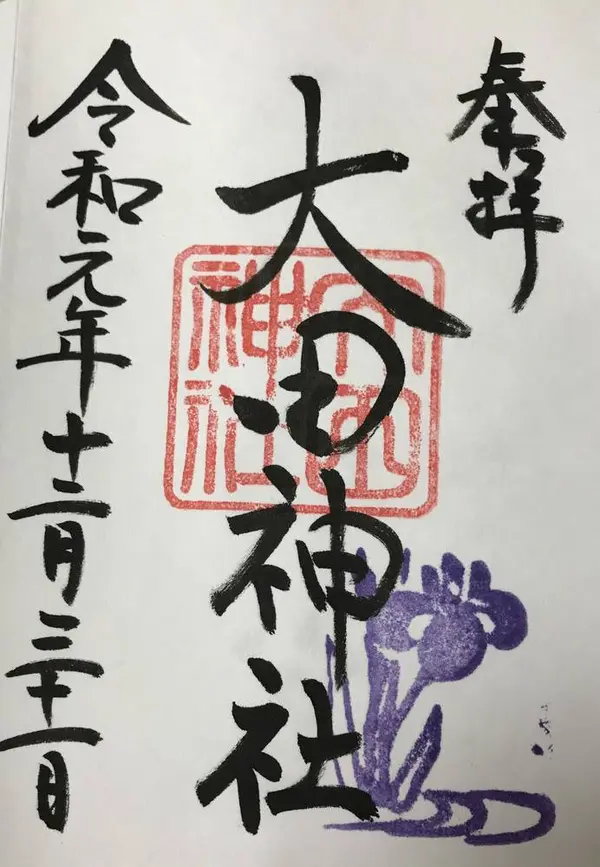 奉拝
大田神社
令和元年十二月三十一日
大田神社